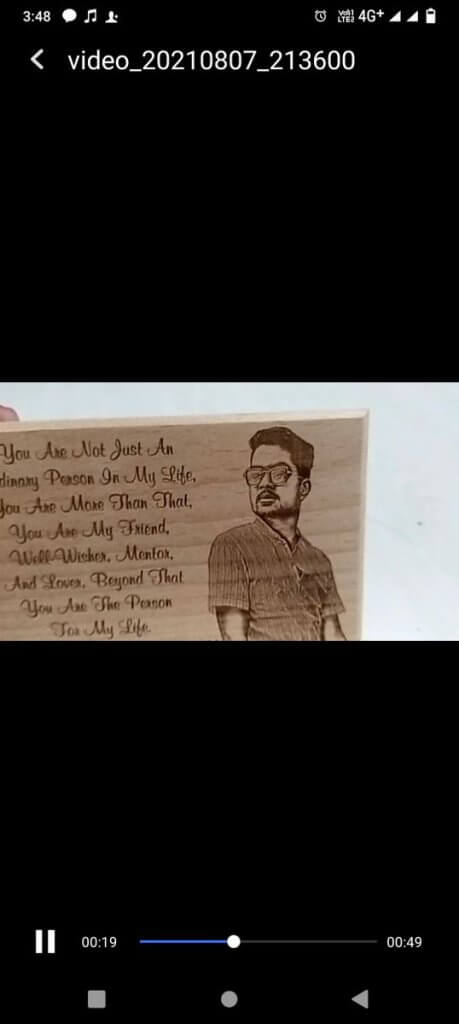 3:48
Vo)) LTE2 4G+
video_20210807_213600
You Are Not Just An
dinary Person In My Life,
You Are More Than That,
You Are My Friend,
Well-Wisher, Mentor,
And Lover, Beyond That
You Are The Person
For My Life.
00:19
00:49